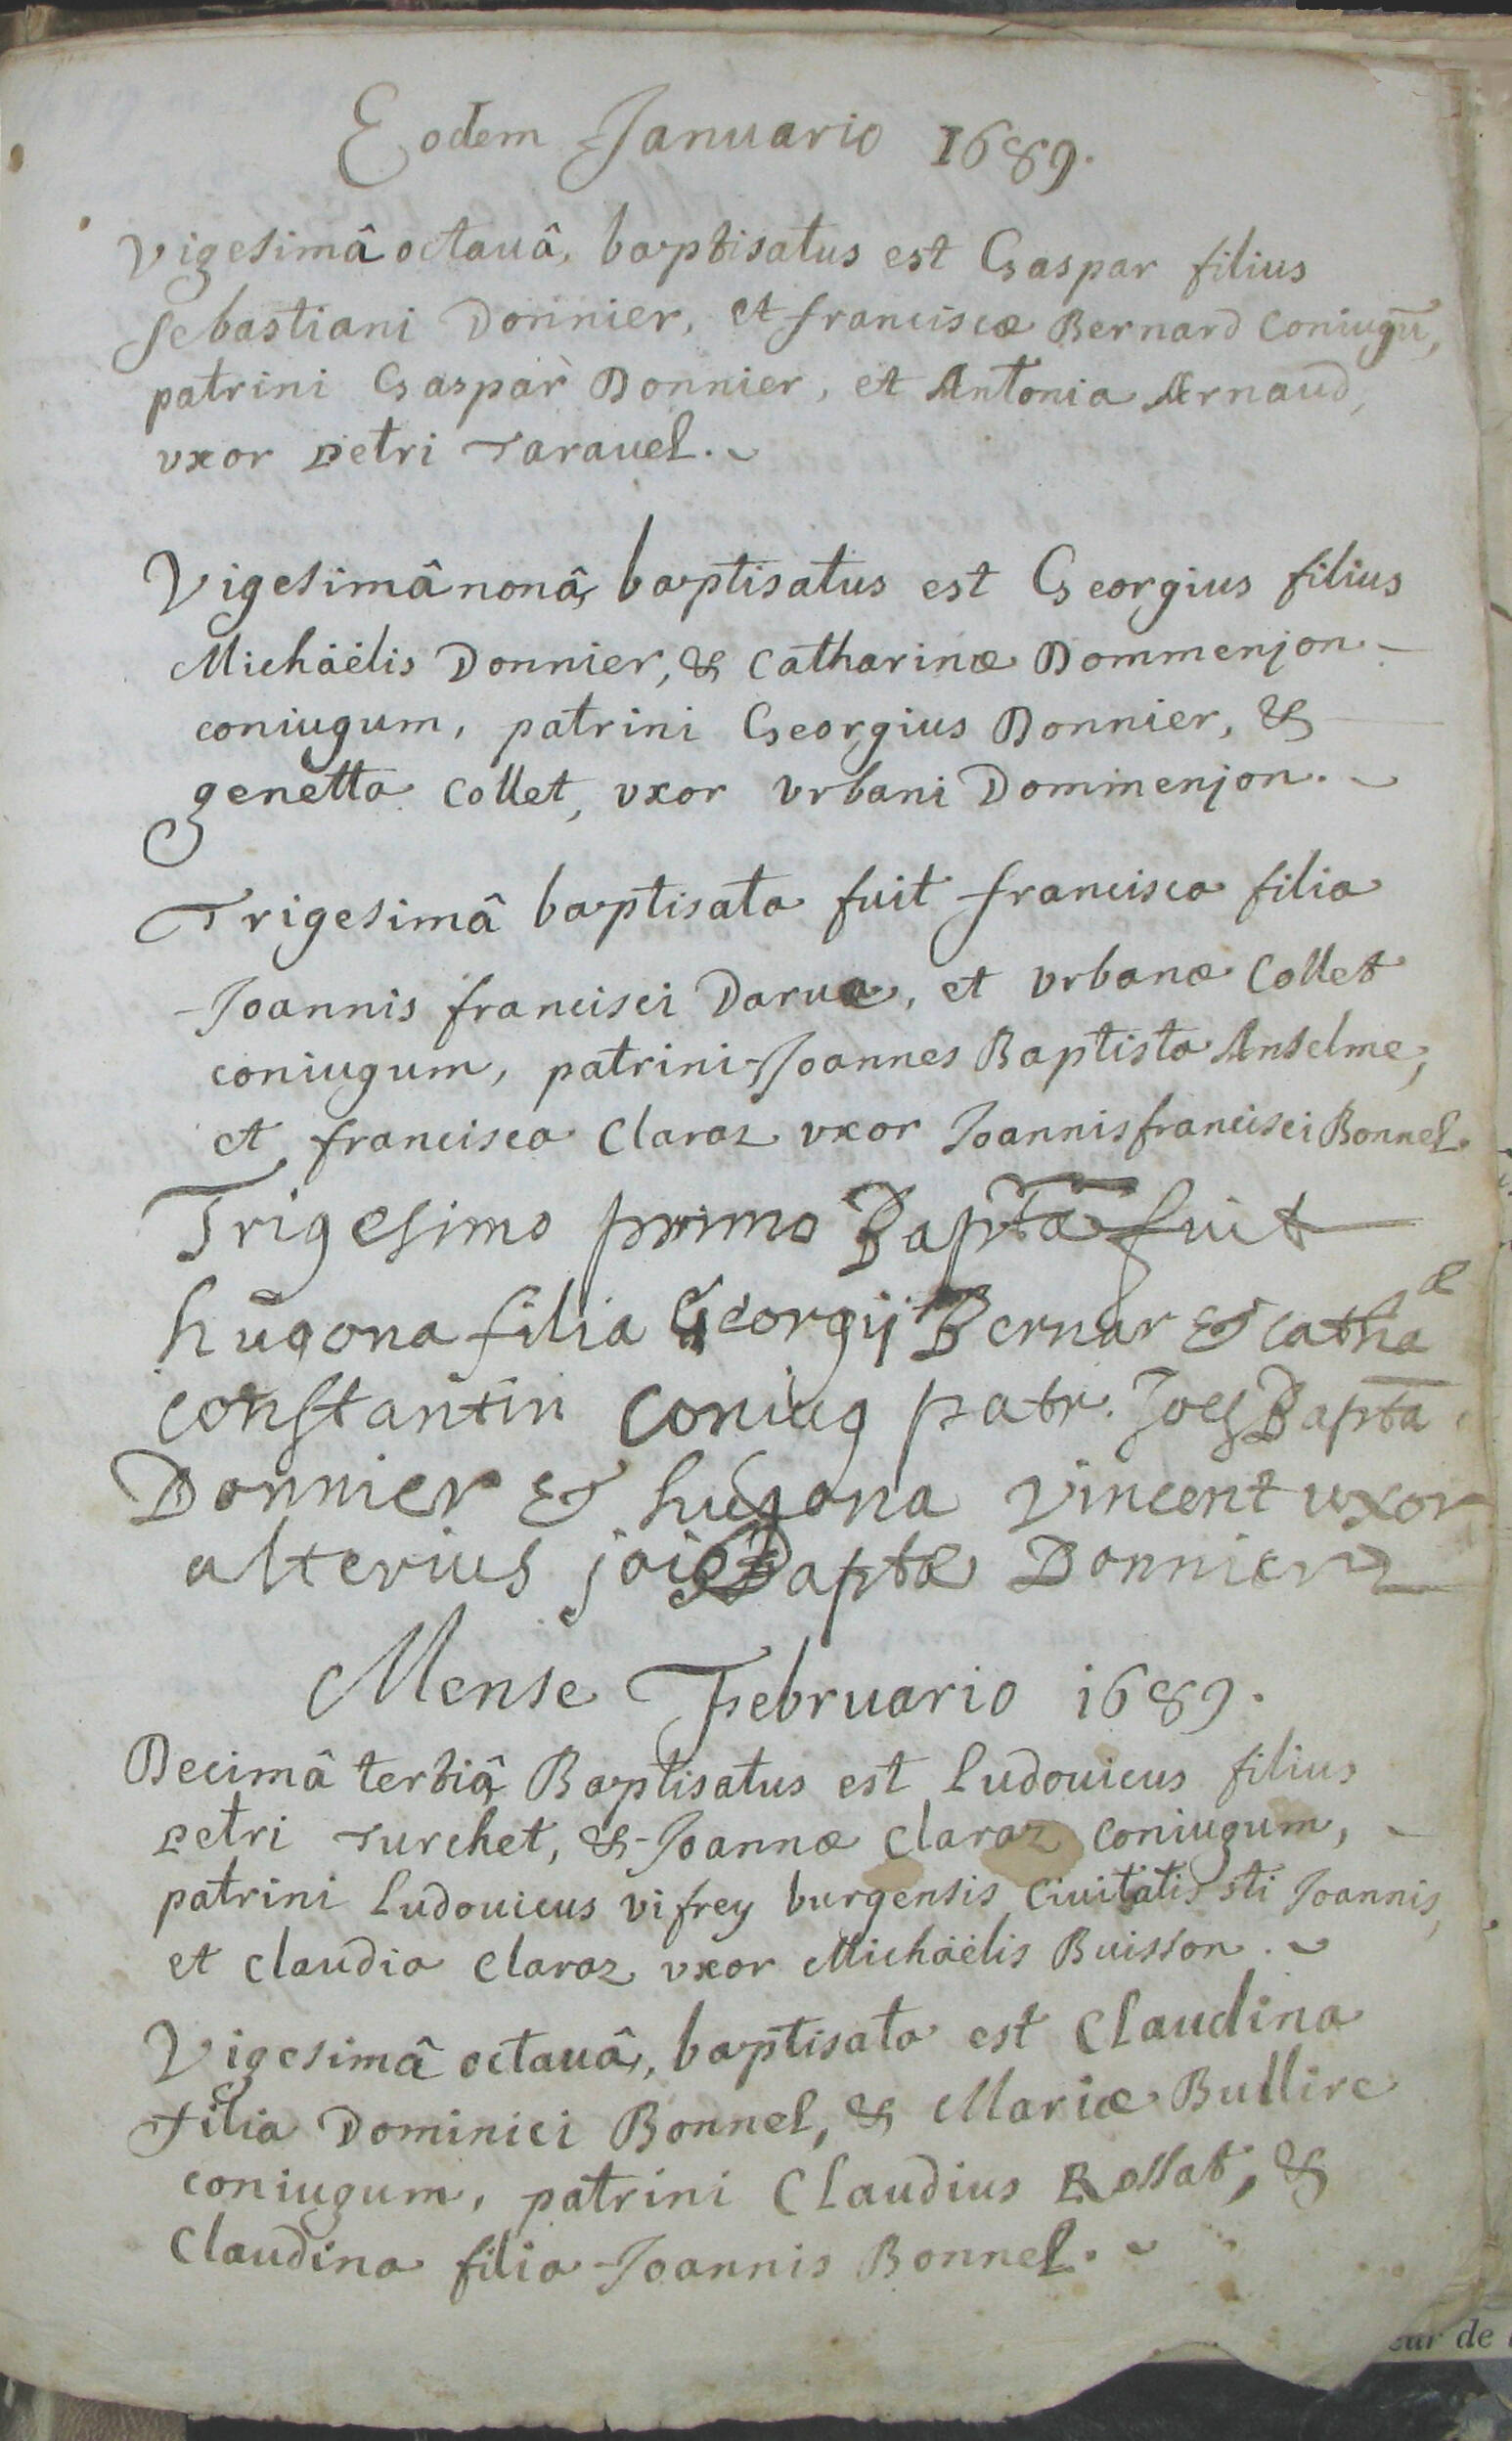 Eodem Januario 1689.
Vigesimâ octauâ, baptisatus est Gaspar filius
Sebastiani Donnier, et franciscæ Bernard coniugū,
patrini Gaspar Donnier, et Antonia Arnaud,
vxor petri Tarauel.
Vigesimâ nonâ, baptisatus est Georgius filius
Michäélis Donnier, & catharinæ Dommenjon
coniugum, patrini Georgius Donnier, &
genetta Collet, vxor vrbani Dommenjon.
Trigesimâ baptisata fuit francisca filia
Joannis francisci Darue, et vrbanæ Collet
coniugum, patrini Joannes Baptista Anselme,
et francisca Claraz vxor Joannis francisci Bonnel.
Trigesimo primo Bapta fuit
hugona filia Georgij Bernar & cathæ
constantin coniug patr. Joes Bapta
Donnier & hugona vincent uxor
alterius jois Baptæ Donnier
Mense Februario 1689.
Decimâ tertiâ Baptisatus est Ludouicus filius
petri Turchet, & Joannæ Claraz coniugum,
patrini Ludouicus vifrey burgensis Ciuitatis sti Joannis,
et claudia Claraz vxor Michäélis Buisson.
Vigesimâ octauâ, baptisata est Claudina
Filia Dominici Bonnel, & Mariæ Bullire
coniugum, patrini Claudius Rossat, &
Claudina filia Joannis Bonnel.
eur de